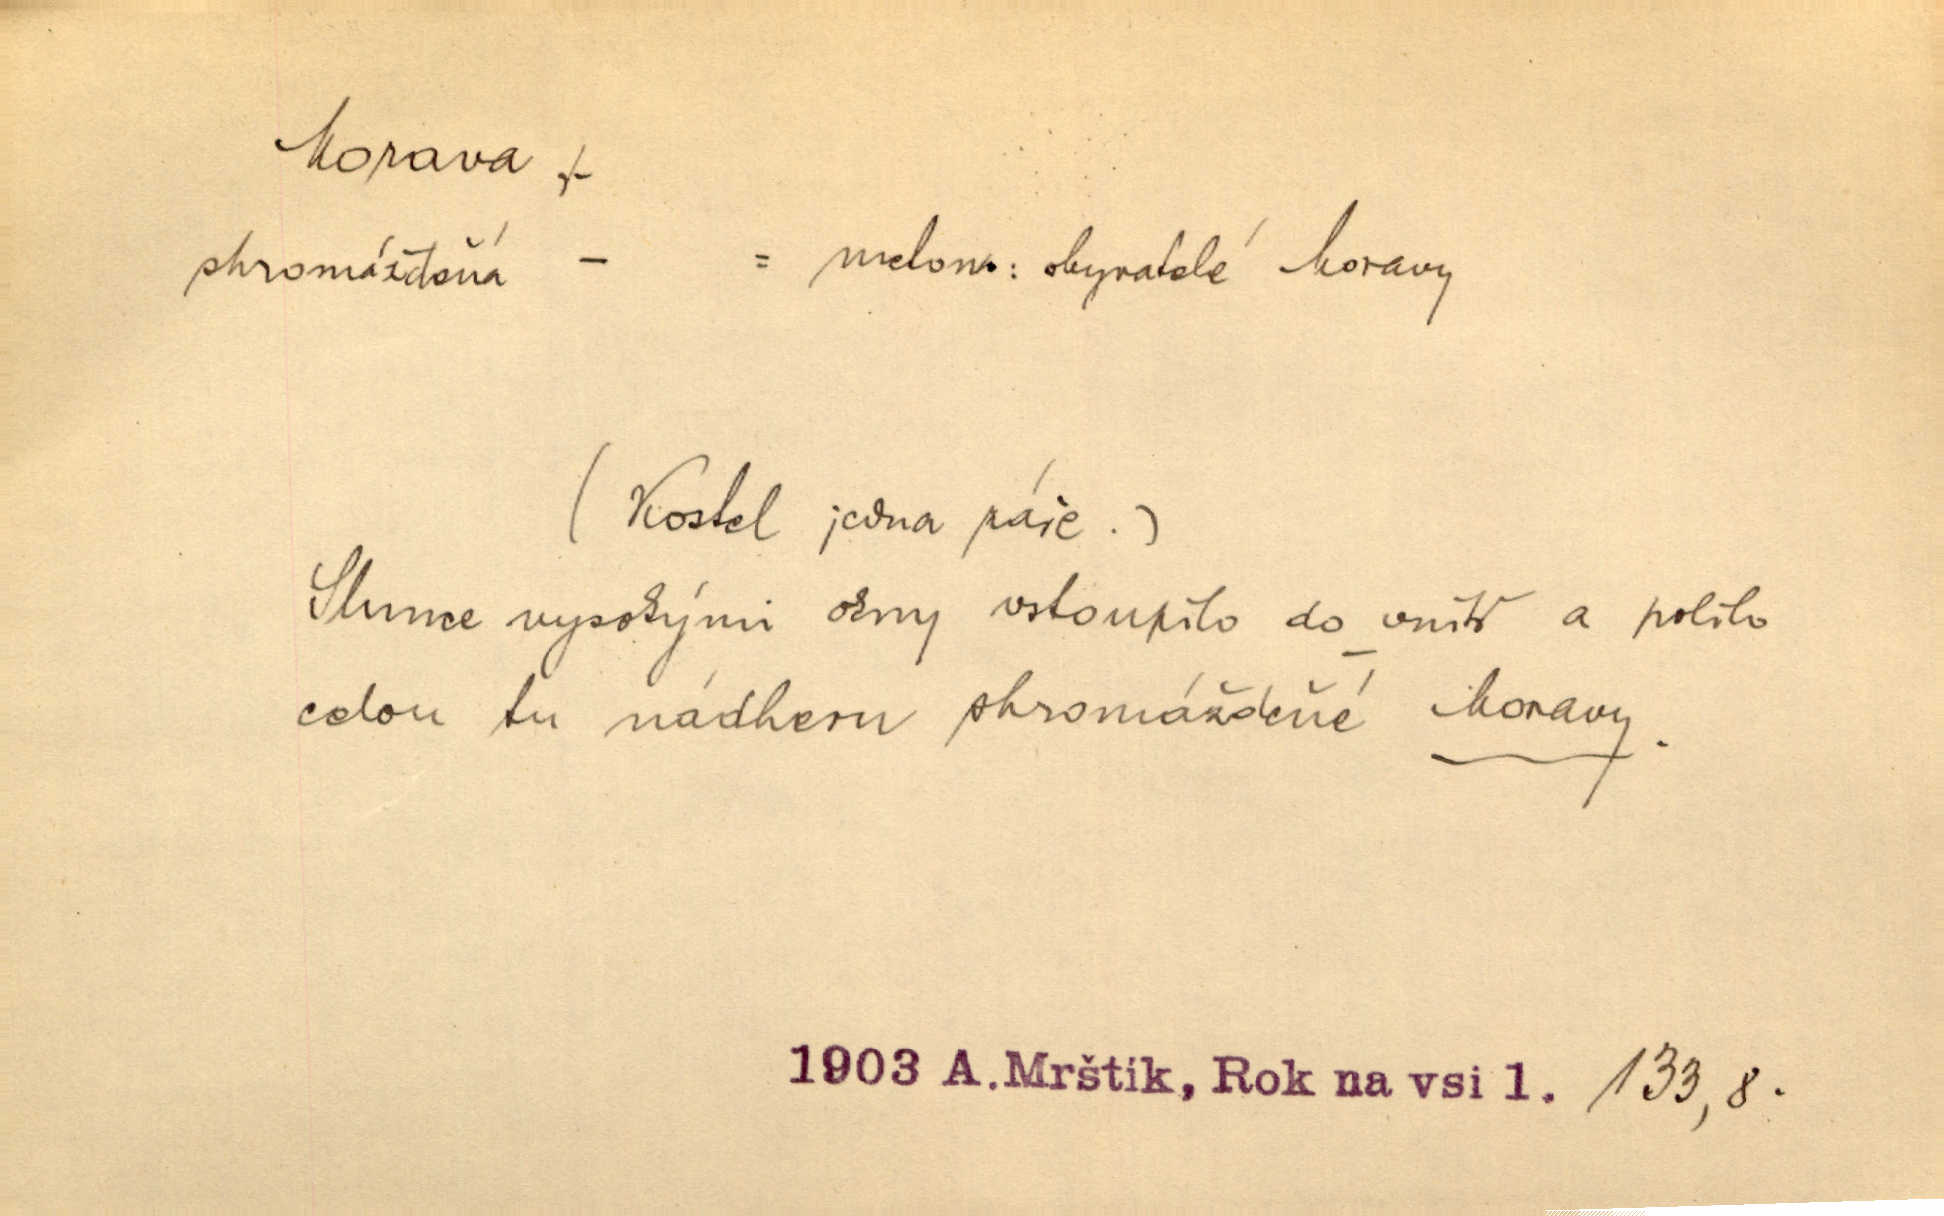 Morava, f.
shromážděná – = meton.: obyvatelé Moravy
(Kostel jedna záře.)
Slunce vysokými okny vstoupilo do vnitř a polilo
celou tu nádheru shromážděné Moravy.
1903 A. Mrštík, Rok na vsi 1. 133, 8.